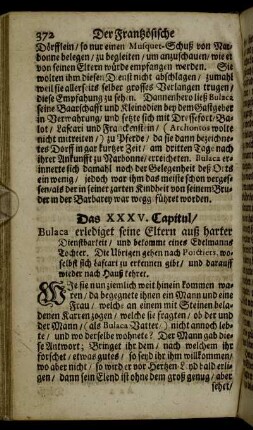 372 Der Frantzösische
Dörfflein / so nur einen Musquet-Schuß von Nar-
bonne belegen / zu begleiten / um anzuschauen / wie er
von seinen Eltern würde empfangen werden. Sie
wolten ihm diesen Dienst nicht abschlagen / zumahl
weil sie allerseits selber grosses Verlangen trugen /
diese Empfahung zu sehen. Dannenhero ließ Bulaca
seine Baarschafft und Kleinodien bey dem Gastgeber
in Verwahrung / und setzte sich mit Drissefort / Ba-
lot / Lascari und Franckenstein / ( Archontos wolte
nicht mitreiten / ) zu Pferde / da sie dann bezeichne-
tes Dorff in gar kurtzer Zeit / am dritten Tage nach
ihrer Ankunfft zu Narbonne / erreicheten. Bulaca er-
innerte sich damahl noch der Gelegenheit deß Orts
ein wenig / jedoch war ihm das meiste schon verges-
sen / als der in seiner zarten Kindheit von seinem Bru-
der in der Barbarey war wegg führet worden.
Das XXXV. Capitul /
Bulaca erlediget seine Eltern auß harter
Dienstbarkeit / und bekomt eines Edelmanns
Tochter. Die Ubrigen gehen nach Poictiers, wo-
selbst sich Lascari zu erkennen gibt / und darauff
wieder nach Hauß kehret.
WJe sie nun ziemlich weit hinein kommen wa-
ren / da begegnete ihnen ein Mann und eine
Frau / welche an einem mit Steinen bela-
denen Karren zogen / welche sie fragten / ob der und
der Mann / (als Bulaca Vatter / ) nicht annoch leb-
te / und wo derselbe wohnete? Der Mann gab die-
se Antwort; Bringet ihr dem / nach welchem ihr
forschet / etwas gutes / so seyd ihr ihm willkommen /
wo aber nicht / so wird er vor Hertzen-Leyd bald erli-
gen / dann sein Elend ist ohne dem groß genug / aber
sehet /